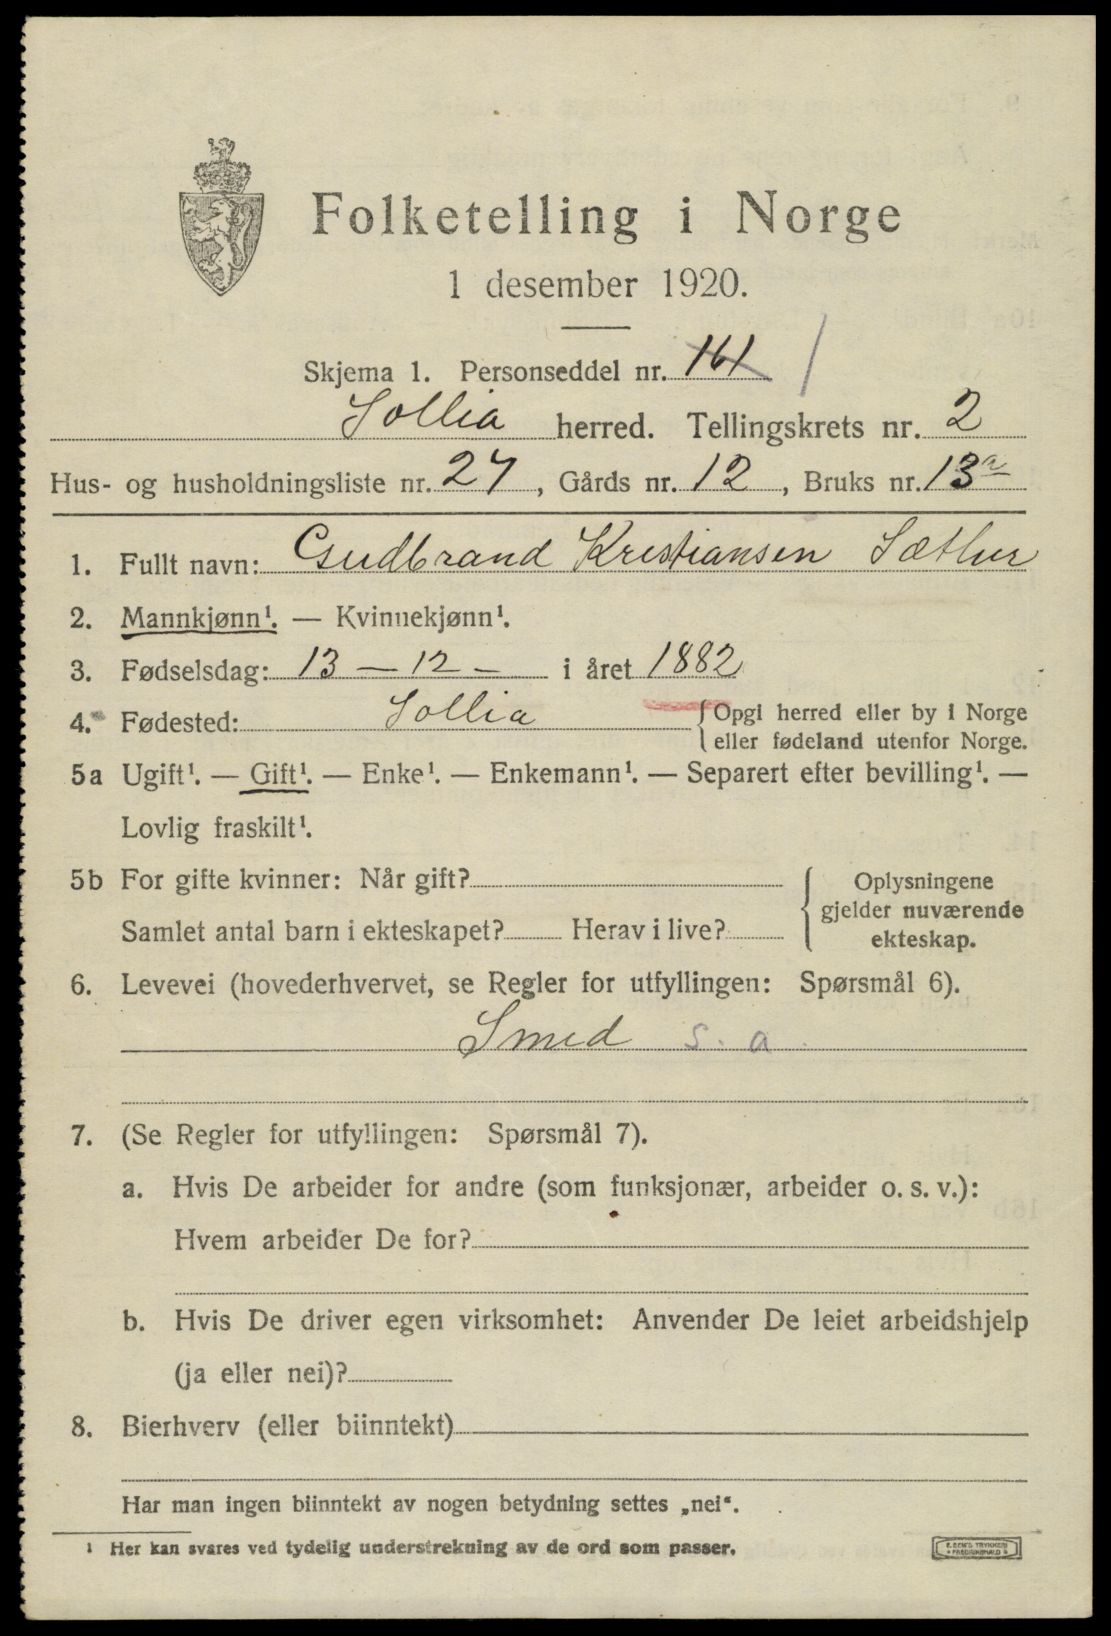 Folketelling i Norge
1 desember 1920.
Skjema 1. Personseddel nr. 161 /
Sollia herred. Tellingskrets nr. 2
Hus- og husholdningsliste nr. 27, Gårds nr. 12, Bruks nr. 13a
1. Fullt navn: Gudbrand Kristiansen Sæther
2. Mannkjønn¹. — Kvinnekjønn¹.
3. Fødselsdag: 13 — 12 — i året 1882
4. Fødested: Sollia { Opgi herred eller by i Norge
eller fødeland utenfor Norge.
5a Ugift¹. — Gift¹. — Enke¹. — Enkemann¹. — Separert efter bevilling¹. —
Lovlig fraskilt¹.
5b For gifte kvinner: Når gift?
Samlet antal barn i ekteskapet? Herav i live?
Oplysningene
gjelder nuværende
ekteskap.
6. Levevei (hovederhvervet, se Regler for utfyllingen: Spørsmål 6).
Smed s. a.
7. (Se Regler for utfyllingen: Spørsmål 7).
a. Hvis De arbeider for andre (som funksjonær, arbeider o. s. v.):
Hvem arbeider De for?
b. Hvis De driver egen virksomhet: Anvender De leiet arbeidshjelp
(ja eller nei)?
8. Bierhverv (eller biinntekt)
Har man ingen biinntekt av nogen betydning settes „nei“.
¹ Her kan svares ved tydelig understrekning av de ord som passer.